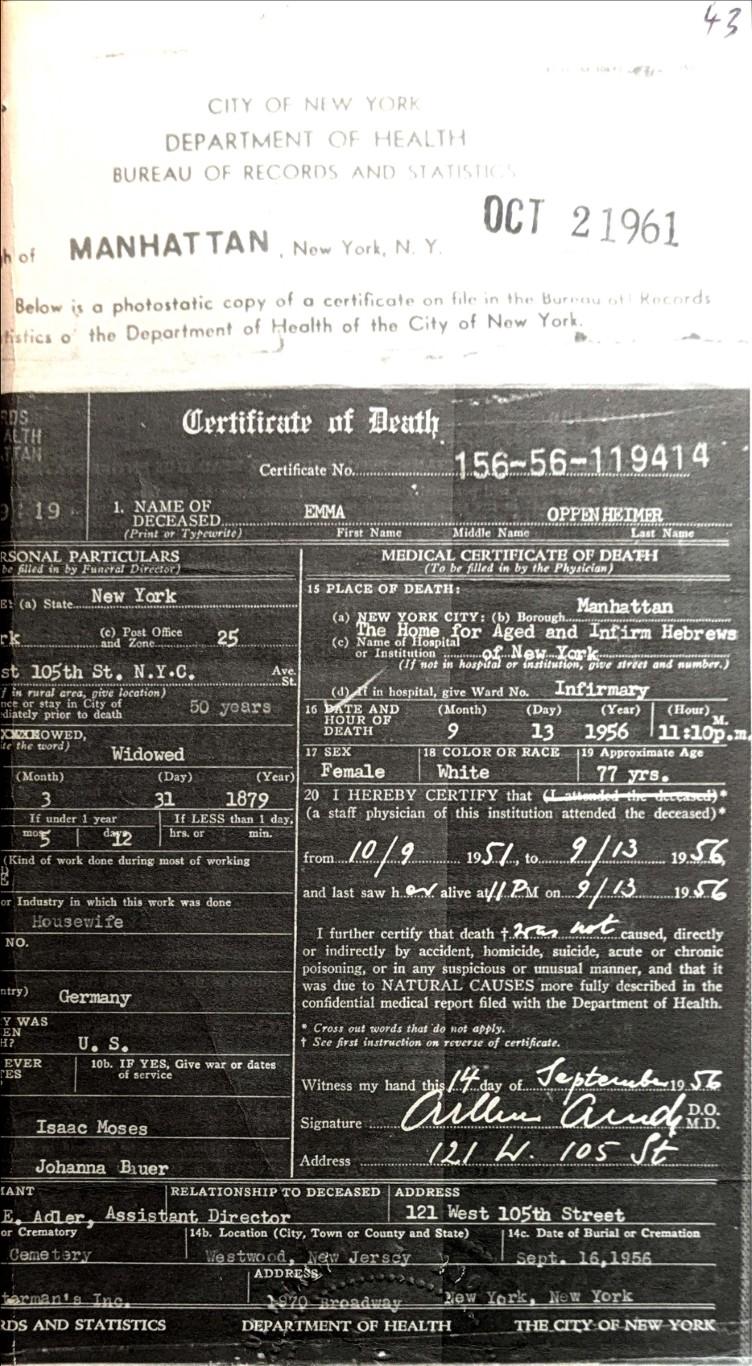 43
CITY OF NEW YORK
DEPARTMENT OF HEALTH
BUREAU OF RECORDS AND STATISTICS
OCT 2 1961
h of MANHATTAN, New York, N. Y.
Below is a photostatic copy of a certificate on file in the Bureau of Records
tistics o the Department of Health of the City of New York.
RDS
ALTH
TTAN
Certificate of Death
Certificate No. 156-56-119414
19
1. NAME OF DECEASED EMMA OPPENHEIMER
(Print or Typewrite) First Name Middle Name Last Name
RSONAL PARTICULARS
be filled in by Funeral Director)
E: (a) State New York
rk (c) Post Office and Zone 25
st 105th St. N.Y.C. Ave. St.
f in rural area, give location)
nce or stay in City of
diately prior to death 50 years
OWED,
ite the word)
Widowed
(Month) (Day) (Year)
3 31 1879
If under 1 year If LESS than 1 day,
mos. 5 days 12 hrs. or min.
(Kind of work done during most of working
E
or Industry in which this work was done
Housewife
NO.
ntry) Germany
Y WAS
EN
H? U. S.
EVER
ES
10b. IF YES, Give war or dates
of service
Isaac Moses
Johanna Bauer
MEDICAL CERTIFICATE OF DEATH
(To be filled in by the Physician)
15 PLACE OF DEATH:
(a) NEW YORK CITY: (b) Borough Manhattan
(c) Name of Hospital or Institution The Home for Aged and Infirm Hebrews
of New York
(If not in hospital or institution, give street and number.)
(d) If in hospital, give Ward No. Infirmary
16 DATE AND HOUR OF DEATH (Month) (Day) (Year) (Hour) M.
9 13 1956 11:10p.m.
17 SEX 18 COLOR OR RACE 19 Approximate Age
Female White 77 yrs.
20 I HEREBY CERTIFY that (I attended the deceased)*
(a staff physician of this institution attended the deceased)*
from 10/9 1951, to 9/13 1956,
and last saw her alive at 11 PM on 9/13 1956
I further certify that death † was not caused, directly
or indirectly by accident, homicide, suicide, acute or chronic
poisoning, or in any suspicious or unusual manner, and that it
was due to NATURAL CAUSES more fully described in the
confidential medical report filed with the Department of Health.
* Cross out words that do not apply.
† See first instruction on reverse of certificate.
Witness my hand this 14 day of September 1956
Signature D.O. M.D.
Address 121 W. 105 St
MANT RELATIONSHIP TO DECEASED ADDRESS
E. Adler, Assistant Director 121 West 105th Street
or Crematory 14b. Location (City, Town or County and State) 14c. Date of Burial or Cremation
Cemetery Westwood, New Jersey Sept. 16,1956
ADDRESS
terman's Inc. 1970 Broadway New York, New York
RDS AND STATISTICS DEPARTMENT OF HEALTH THE CITY OF NEW YORK